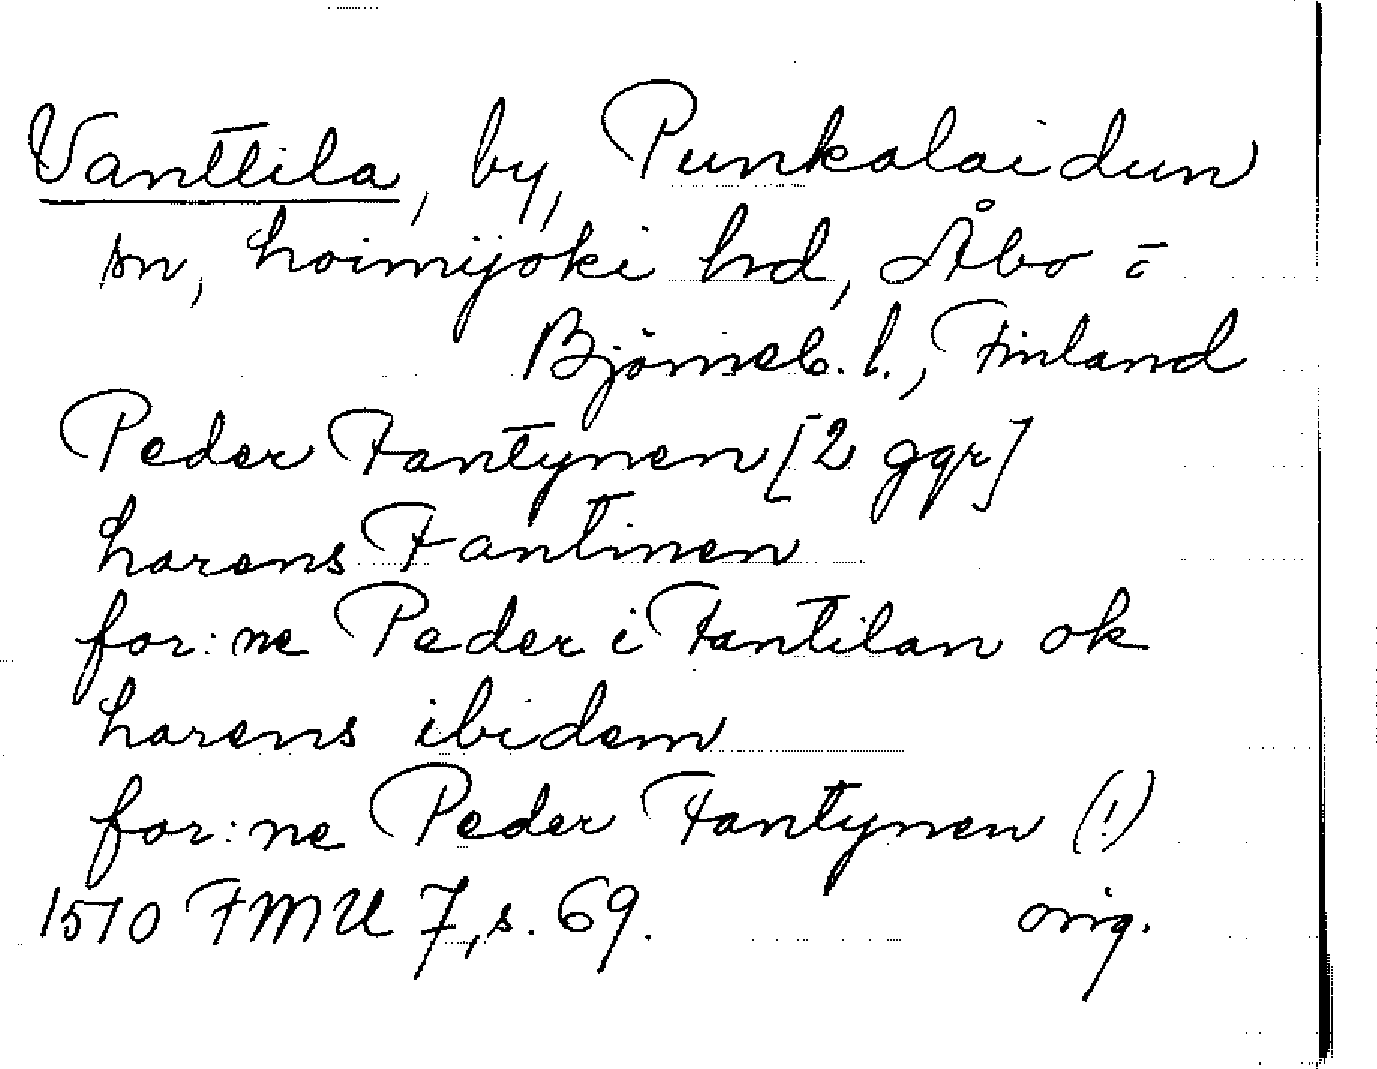 Vanttila, by, Punkalaidun
sn, Loimijoki hd, Åbo o
Björneb. l., Finland
Peder Fantynen [2 ggr]
Larens Fantinen
for:ne Peder i Fantilan ok
Larens ibidem
for:ne Peder Fantynen (!)
1510 FMU 7, s. 69. orig.